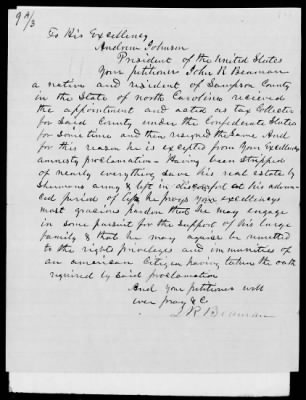 To His Excellency
Andrew Johnson
President of the United States
Your petitioner John R Beaman
a native and resident of Sampson County
in the State of North Carolina received
the appointment and acted as tax Collector
for Said County under the Confederate States
for Some time and then resigned the Same. And
for this reason he is excepted from Your Excellency
amnesty proclamation - Having been stripped
of nearly everything save his real estate by
Shermans army & left in discomfort at his advan
ced period of life he prays your excellencys
most gracious pardon that he may engage
in some pursuit for the support of his large
family & that he may again be
to the rights privileges and immunities of
an american Citizen having taken the oath
required by said proclamation
And your petitioner will
ever pray &c
J R Beaman